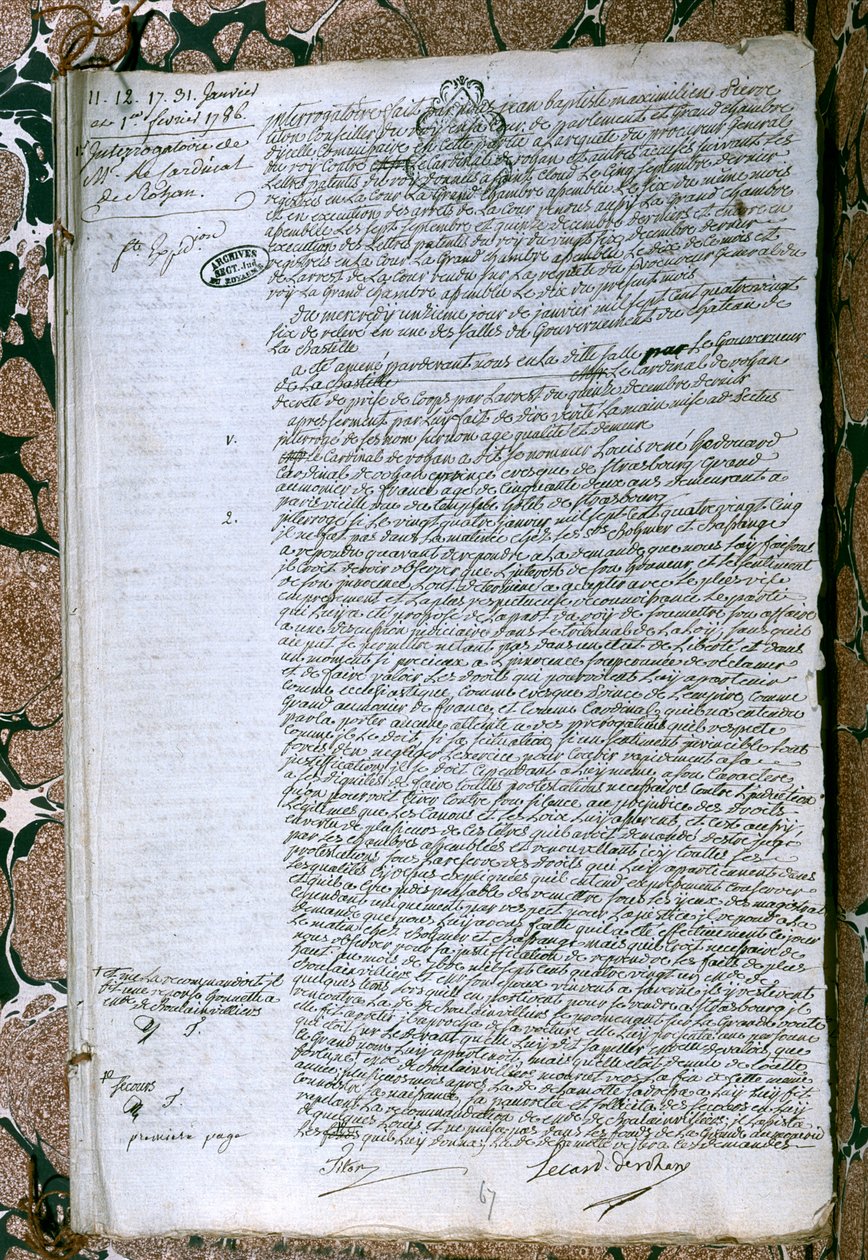 11. 12. 17. 31. Janvier
et 1er fevrier 1786.
Interrogatoire de
Mr. le Cardinal
de Rohan.
fte Exped ion
ARCHIVES
SECT. Jud.
DU ROYAUME
interrogatoire fait par nous jean baptiste maximilien pierre
titon Conseiller du roy en sa Cour de parlement et Grand chambre
d'icelle Commissaire en cette partie a la requete du procureur General
du roy contre le Cardinal de rohan et autres accusés suivant les
Lettres patentes du roy données a saint cloud Le Cinq septembre dernier
registrées en La Cour La Grand chambre assemblée Le six du meme mois
et en execution des arrets de La Cour rendus aussy La Grand chambre
assemblée Les sept septembre et quinze decembre derniers et encore en
execution des Lettres patentes du roy du vingt six decembre dernier
registrées en La Cour La Grand chambre assemblée Le dix de ce mois et
de Larrest de La Cour rendu sur La requete du procureur General du
roy La Grand chambre assemblée Le dix du present mois
du mercredy unzieme jour de janvier mil sept cent quatre vingt
six de relevé en une des salles du Gouvernement du chateau de
La bastille
a eté amené pardevant nous en La ditte salle par Le Gouverneur
de La bastille le Cardinal de rohan
decreté de prise de Corps par Larrest du quinze decembre dernier
apres serment par Luy fait de dire verité La main mise ad pectus
1. interrogé de ses nom surnom age qualité et demeure
le Cardinal de rohan a dit se nommer Louis rené Edouard
Cardinal de rohan evesque de strasbourg Grand
aumonier de france agé de cinquante deux ans demeurant a
paris vieille rue du temple hotel de strasbourg
2. interrogé si Le vingt quatre janvier mil sept cent quatre vingt cinq
il ne fut pas dans La matinée chez Les srs Bohmer et Bassange
a repondu qu'avant de repondre a La demande que nous Luy faisons
il croit devoir observer que L'interest de son honneur, et Le sentiment
de son innocence, L'ont determiné a accepter avec Le plus vif
empressement et La plus respectueuse reconnoissance Le parti
qui Luy a eté proposé de La part du roy de soumettre son affaire
a une discussion judiciaire dans Le tribunal de La Loy, sans qu'il
ait pu se permettre n'etant pas dans un etat de Liberté et dans
un moment si precieux a L'innocence soupçonnée de reclamer
et de faire valoir Les droits qui pouvoient Luy appartenir
comme ecclesiastique, comme evesque prince de L'empire, comme
Grand aumonier de france, et comme Cardinal, qu'il n'a entendu
par la porter aucune atteinte a des prerogatives qu'il respecte
comme il le doit, si sa situation, si un sentiment invincible L'ont
forcé d'en negliger L'exercice pour courir rapidement a sa
justification, il se doit cependant a Luy meme, a son caractere
a ses dignités de faire touttes protestations necessaires contre L'induction
qu'on pourroit tirer contre son silence au prejudice des droits
Legitimes que Les Canons et Les Loix Luy assurent, et c'est aussy
en vertu de plusieurs de ces titres qu'il avoit demandé d'estre jugé
par les chambres assemblées et renouvellant icy touttes ses
protestations sous La reserve des droits qui Luy appartiennent dans
Les qualités cy dessus expliquées qu'il entend expressement conserver
et qu'il a cru indispensable de remettre sous Les yeux des magistrats
cependant uniquement par respect pour La justice, il repond a La
demande que nous Luy avons faitte qu'il a eté effectivement ce jour
Le matin chez Bohmer et Bassange mais qu'il croit necessaire de
nous observer pour sa justification de reprendre Les faits de plus
haut au mois de 7bre mil sept cent quatre vingt un mde de
Boulainvilliers et son epoux vinrent a saverne, ils y resterent
quelques tems Lorsqu'ils en partirent pour se rendre a strasbourg, il
rencontra La de de Boulainvilliers se promenant sur La Grande route
elle fit arreter, il aprocha de sa voiture, elle Luy presenta une personne
qui etoit sur Le devant qu'elle Luy dit s'appeller mlle de valois, que
ce grand nom Luy appartenoit, mais qu'elle etoit denuée de toutte
fortune, mde de Boulainvilliers mourut vers La fin de cette meme
année, plusieurs mois apres La de de Lamotte s'adressa a Luy Luy fit
connoitre sa naissance, sa pauvreté et sollicita des secours en Luy
rapellant La recommandation de mde de Boulainvilliers, il L'assista
de quelques Louis et ne puisa pas dans Les fonds de La Grande aumonerie
Les qu'il Luy donna; La de de Lamotte reitera ses demandes
+ et me La recommandoit il
fit une reponse honnette a
mde de Boulainvilliers
secours
premiere page
Titon
Le card. de rohan
67